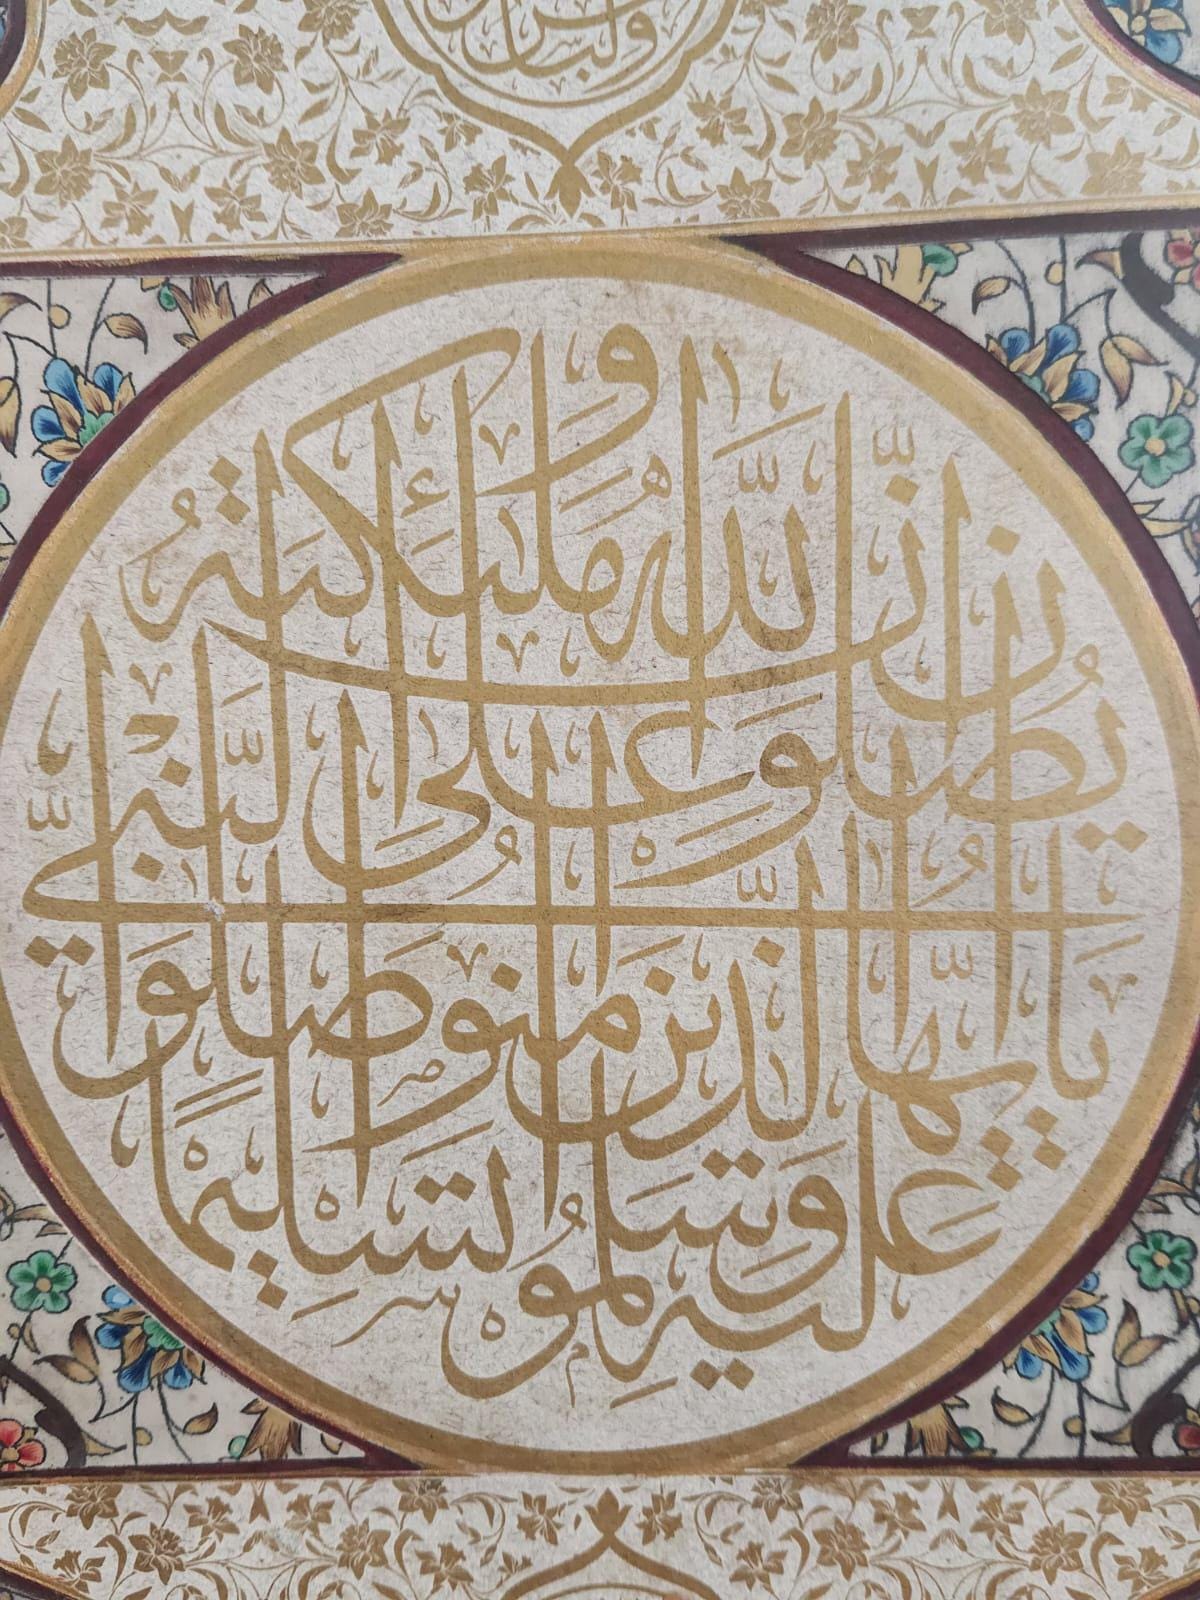 اِنَّ اللّٰهَ وَمَلٰٓئِكَتَهُ
يُصَلُّونَ عَلَى النَّبِيِّ
يَٓا اَيُّهَا الَّذِينَ اٰمَنُوا صَلُّوا
عَلَيْهِ وَسَلِّمُوا تَسْلِيمًا